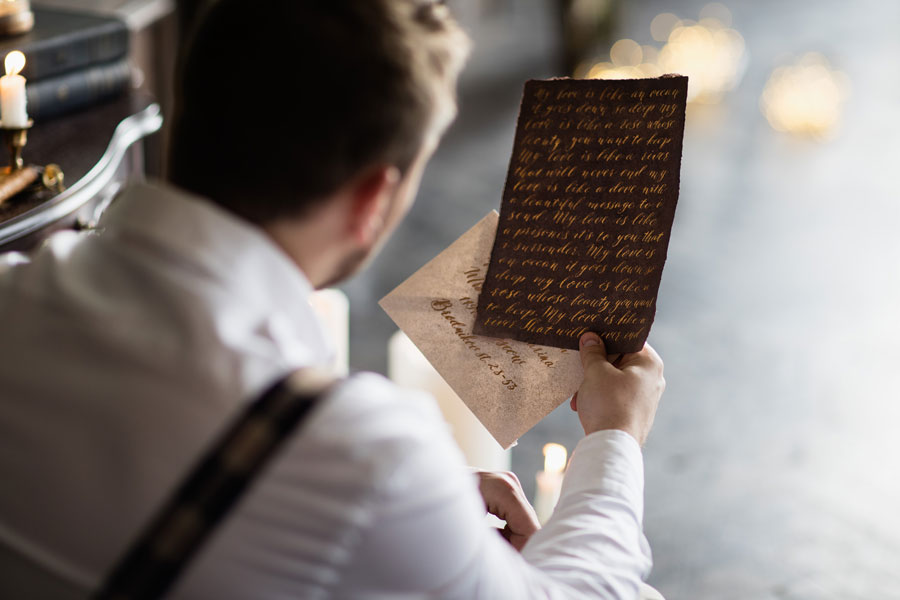 My love is like an ocean
it goes down so deep My
love is like a rose whose
beauty you want to keep
My love is like a river
that will never end My
love is like a dove with
beautiful message to
send. My love is like
prisoner it's to you that
surrender My love
ocean it goes down
deep My love is like
rose whose beauty you want
to keep. My love is like a
river That will never
Brodnikov st. 23-53